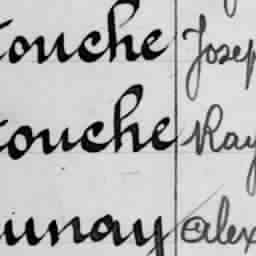 touche Josep
touche Ray
unay Alex